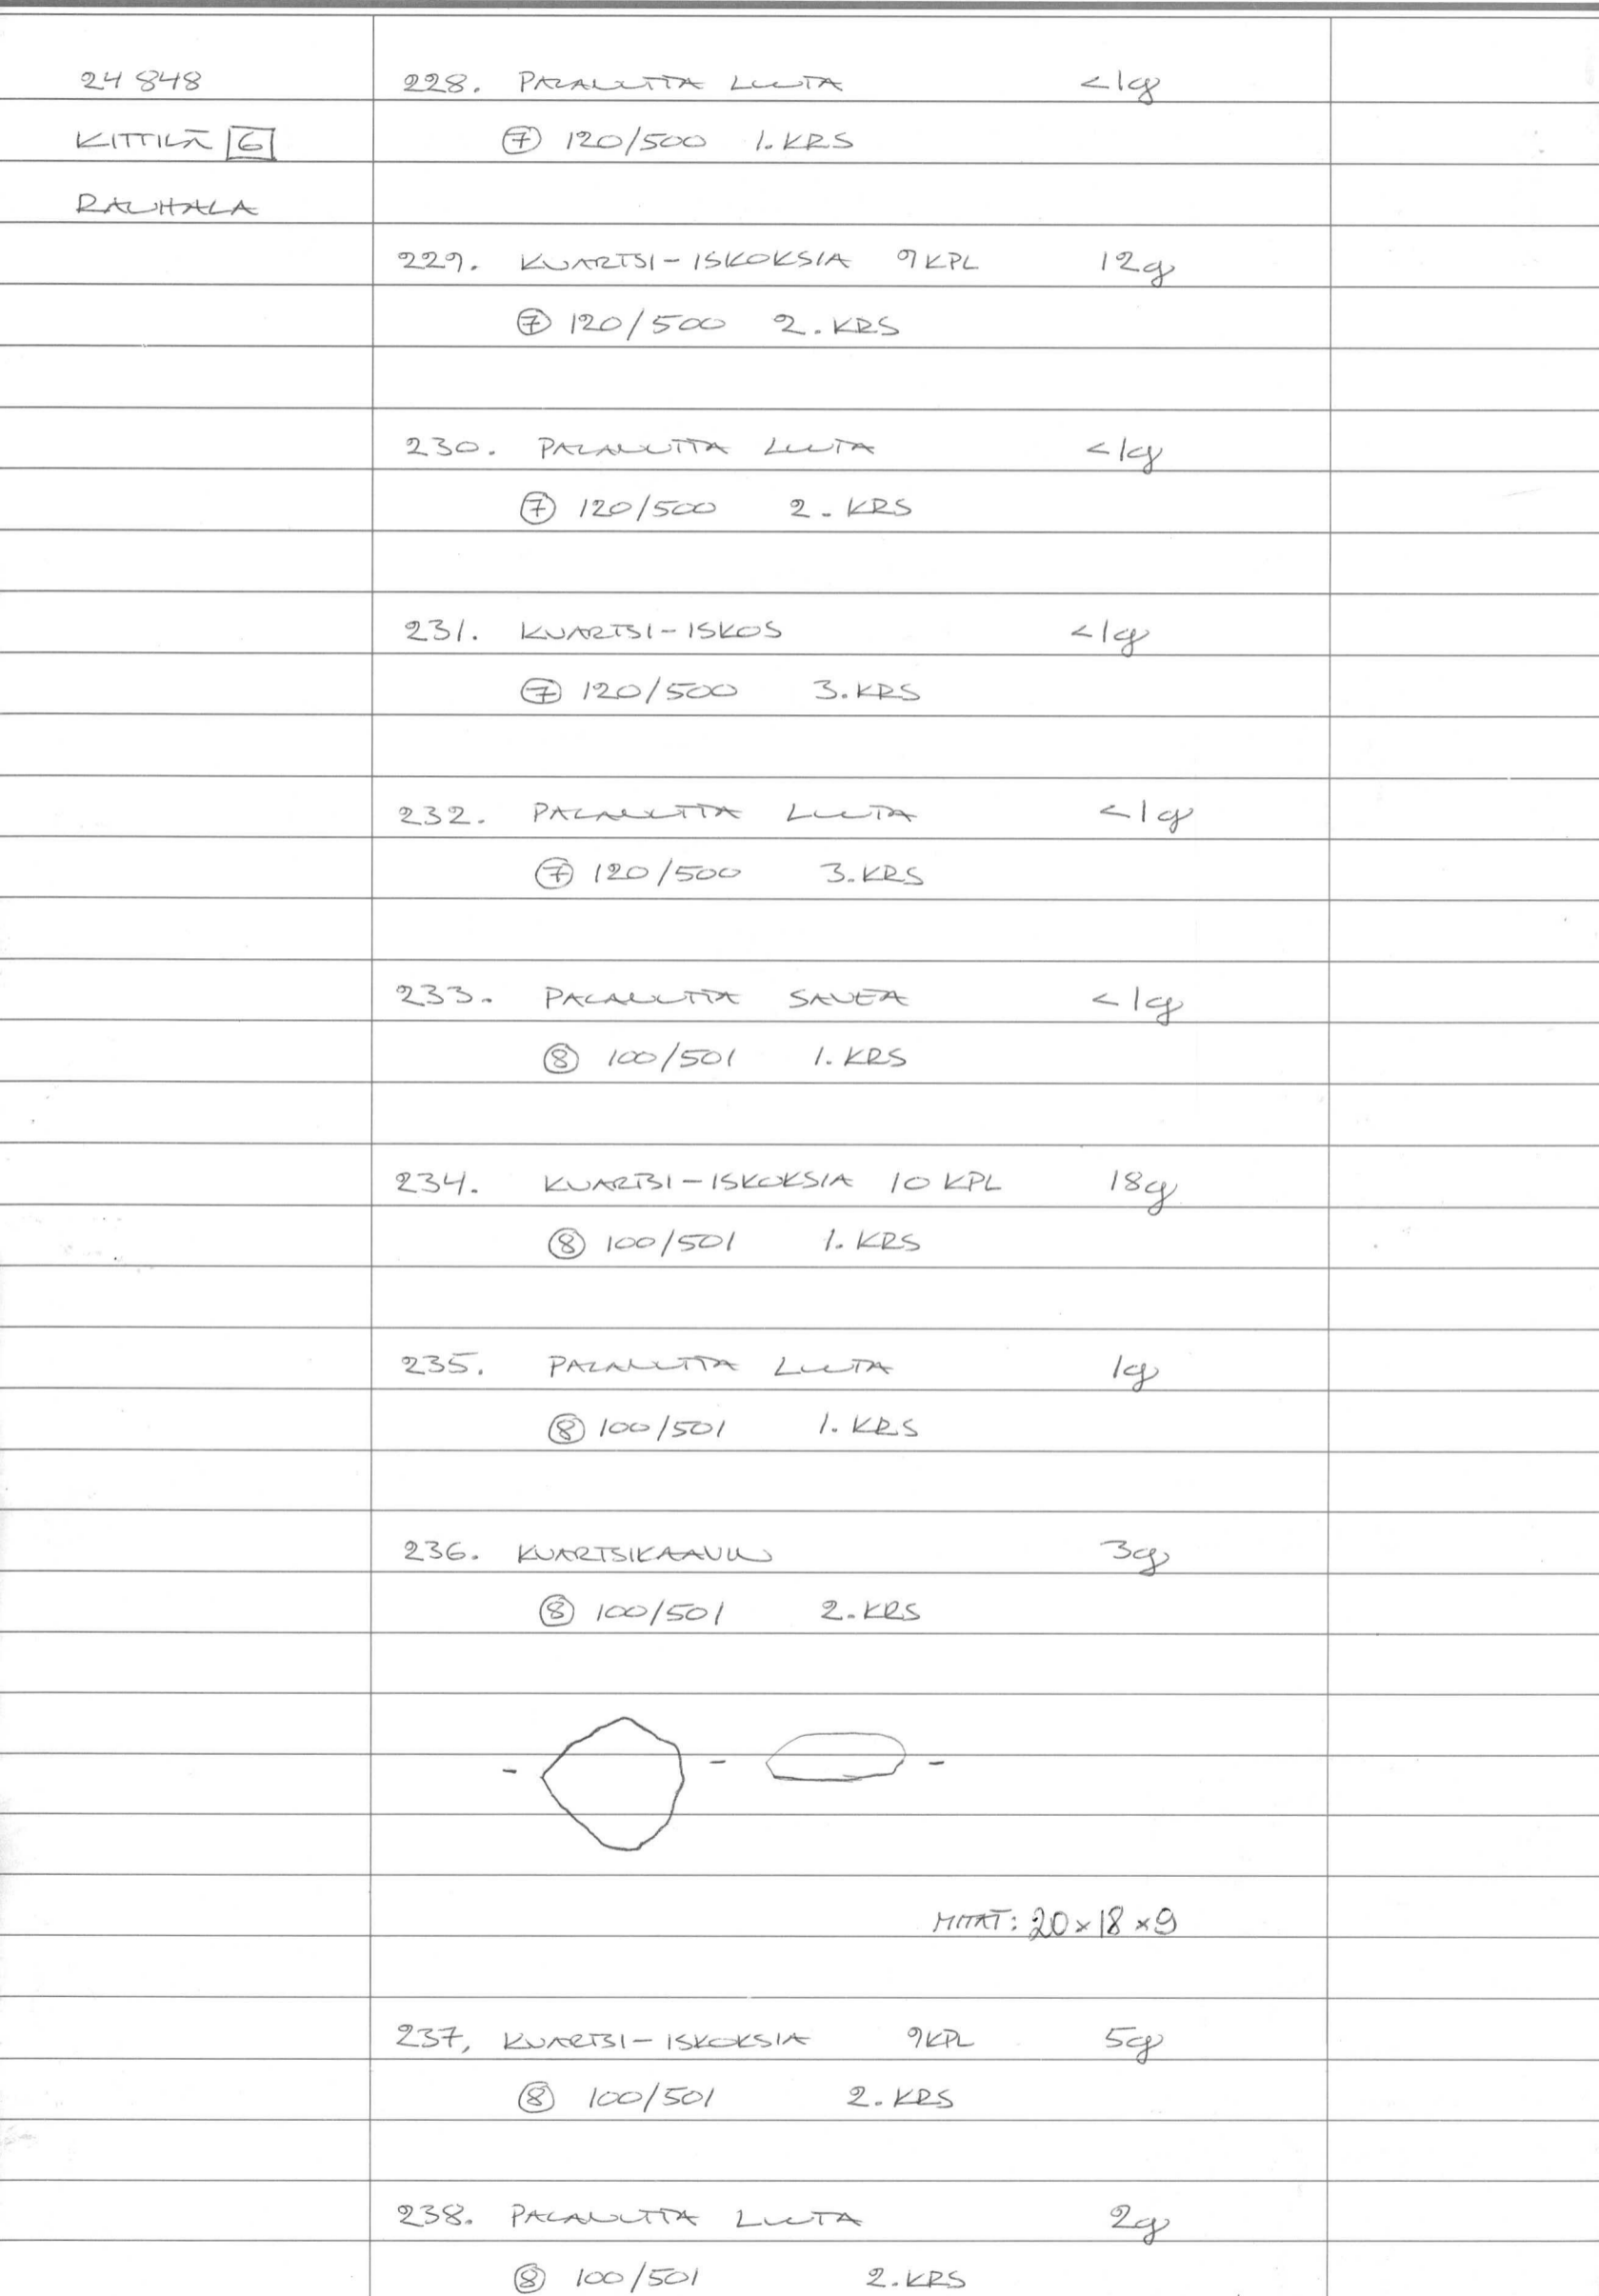 24 848
KITTILÄ 6
RAUHALA
228. PALANUTTA LUUTA <1g
7 120/500 1. KRS
229. KVARTSI-ISKOKSIA 9 KPL 12g
7 120/500 2. KRS
230. PALANUTTA LUUTA <1g
7 120/500 2. KRS
231. KVARTSI-ISKOS <1g
7 120/500 3. KRS
232. PALANUTTA LUUTA <1g
7 120/500 3. KRS
233. PALANUTTA SAVEA <1g
8 100/501 1. KRS
234. KVARTSI-ISKOKSIA 10 KPL 18g
8 100/501 1. KRS
235. PALANUTTA LUUTA 1g
8 100/501 1. KRS
236. KVARTSIKAAVIN 3g
8 100/501 2. KRS
MITAT: 20×18×9
237. KVARTSI-ISKOKSIA 9 KPL 5g
8 100/501 2. KRS
238. PALANUTTA LUUTA 2g
8 100/501 2. KRS